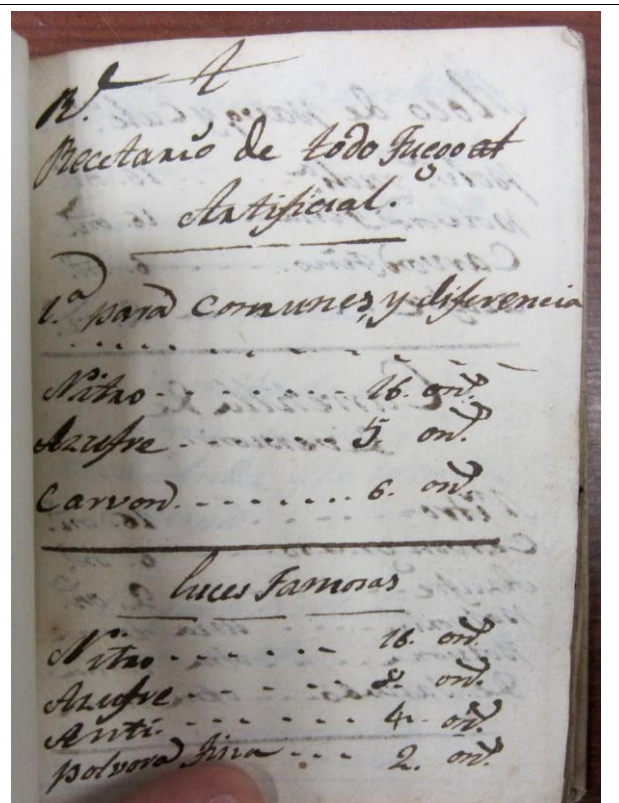 R.e
Recetario de todo Fuego
Artificial.
1.a para comunes, y diferencia
Nitro - - - - - - - 16. onz.
Azufre - - - - - - 5. onz.
Carvon. - - - - - - - 6. onz.
Luces Famosas
Nitro - - - - - - 16. onz.
Azufre - - - - - - 8. onz.
Anti. - - - - - - 4. onz.
polvora fina - - - 2. onz.